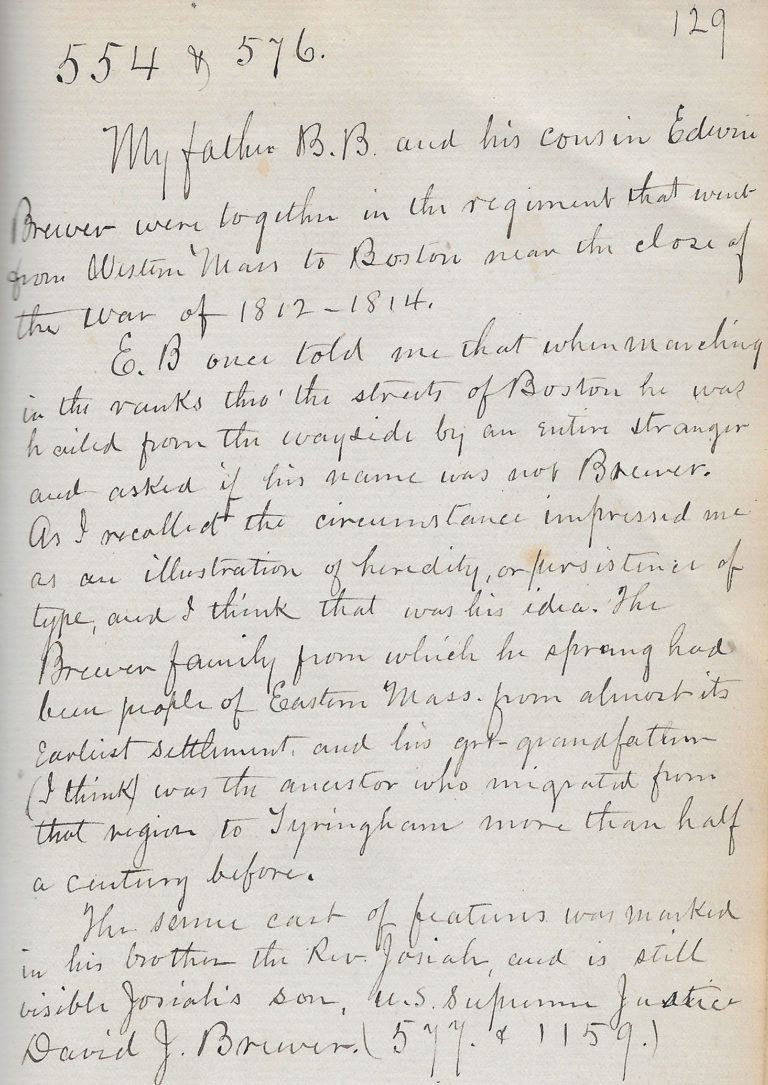 129
554 & 576.
My father B. B. and his cousin Edwin
Brewer were together in the regiment that went
from Western Mass to Boston near the close of
the war of 1812-1814.
E. B once told me that when marching
in the ranks thro' the streets of Boston he was
hailed from the wayside by an entire stranger
and asked if his name was not Brewer.
As I recollect the circumstance impressed me
as an illustration of heredity, or persistence of
type, and I think that was his idea. The
Brewer family from which he sprang had
been people of Eastern Mass. from almost its
Earliest settlement, and his grt-grandfather
(I think) was the ancestor who migrated from
that region to Tyringham more than half
a century before.
The same cast of features was marked
in his brother the Rev. Josiah, and is still
visible Josiah's son, U.S. Supreme Justice
David J. Brewer. (577. & 1159.)